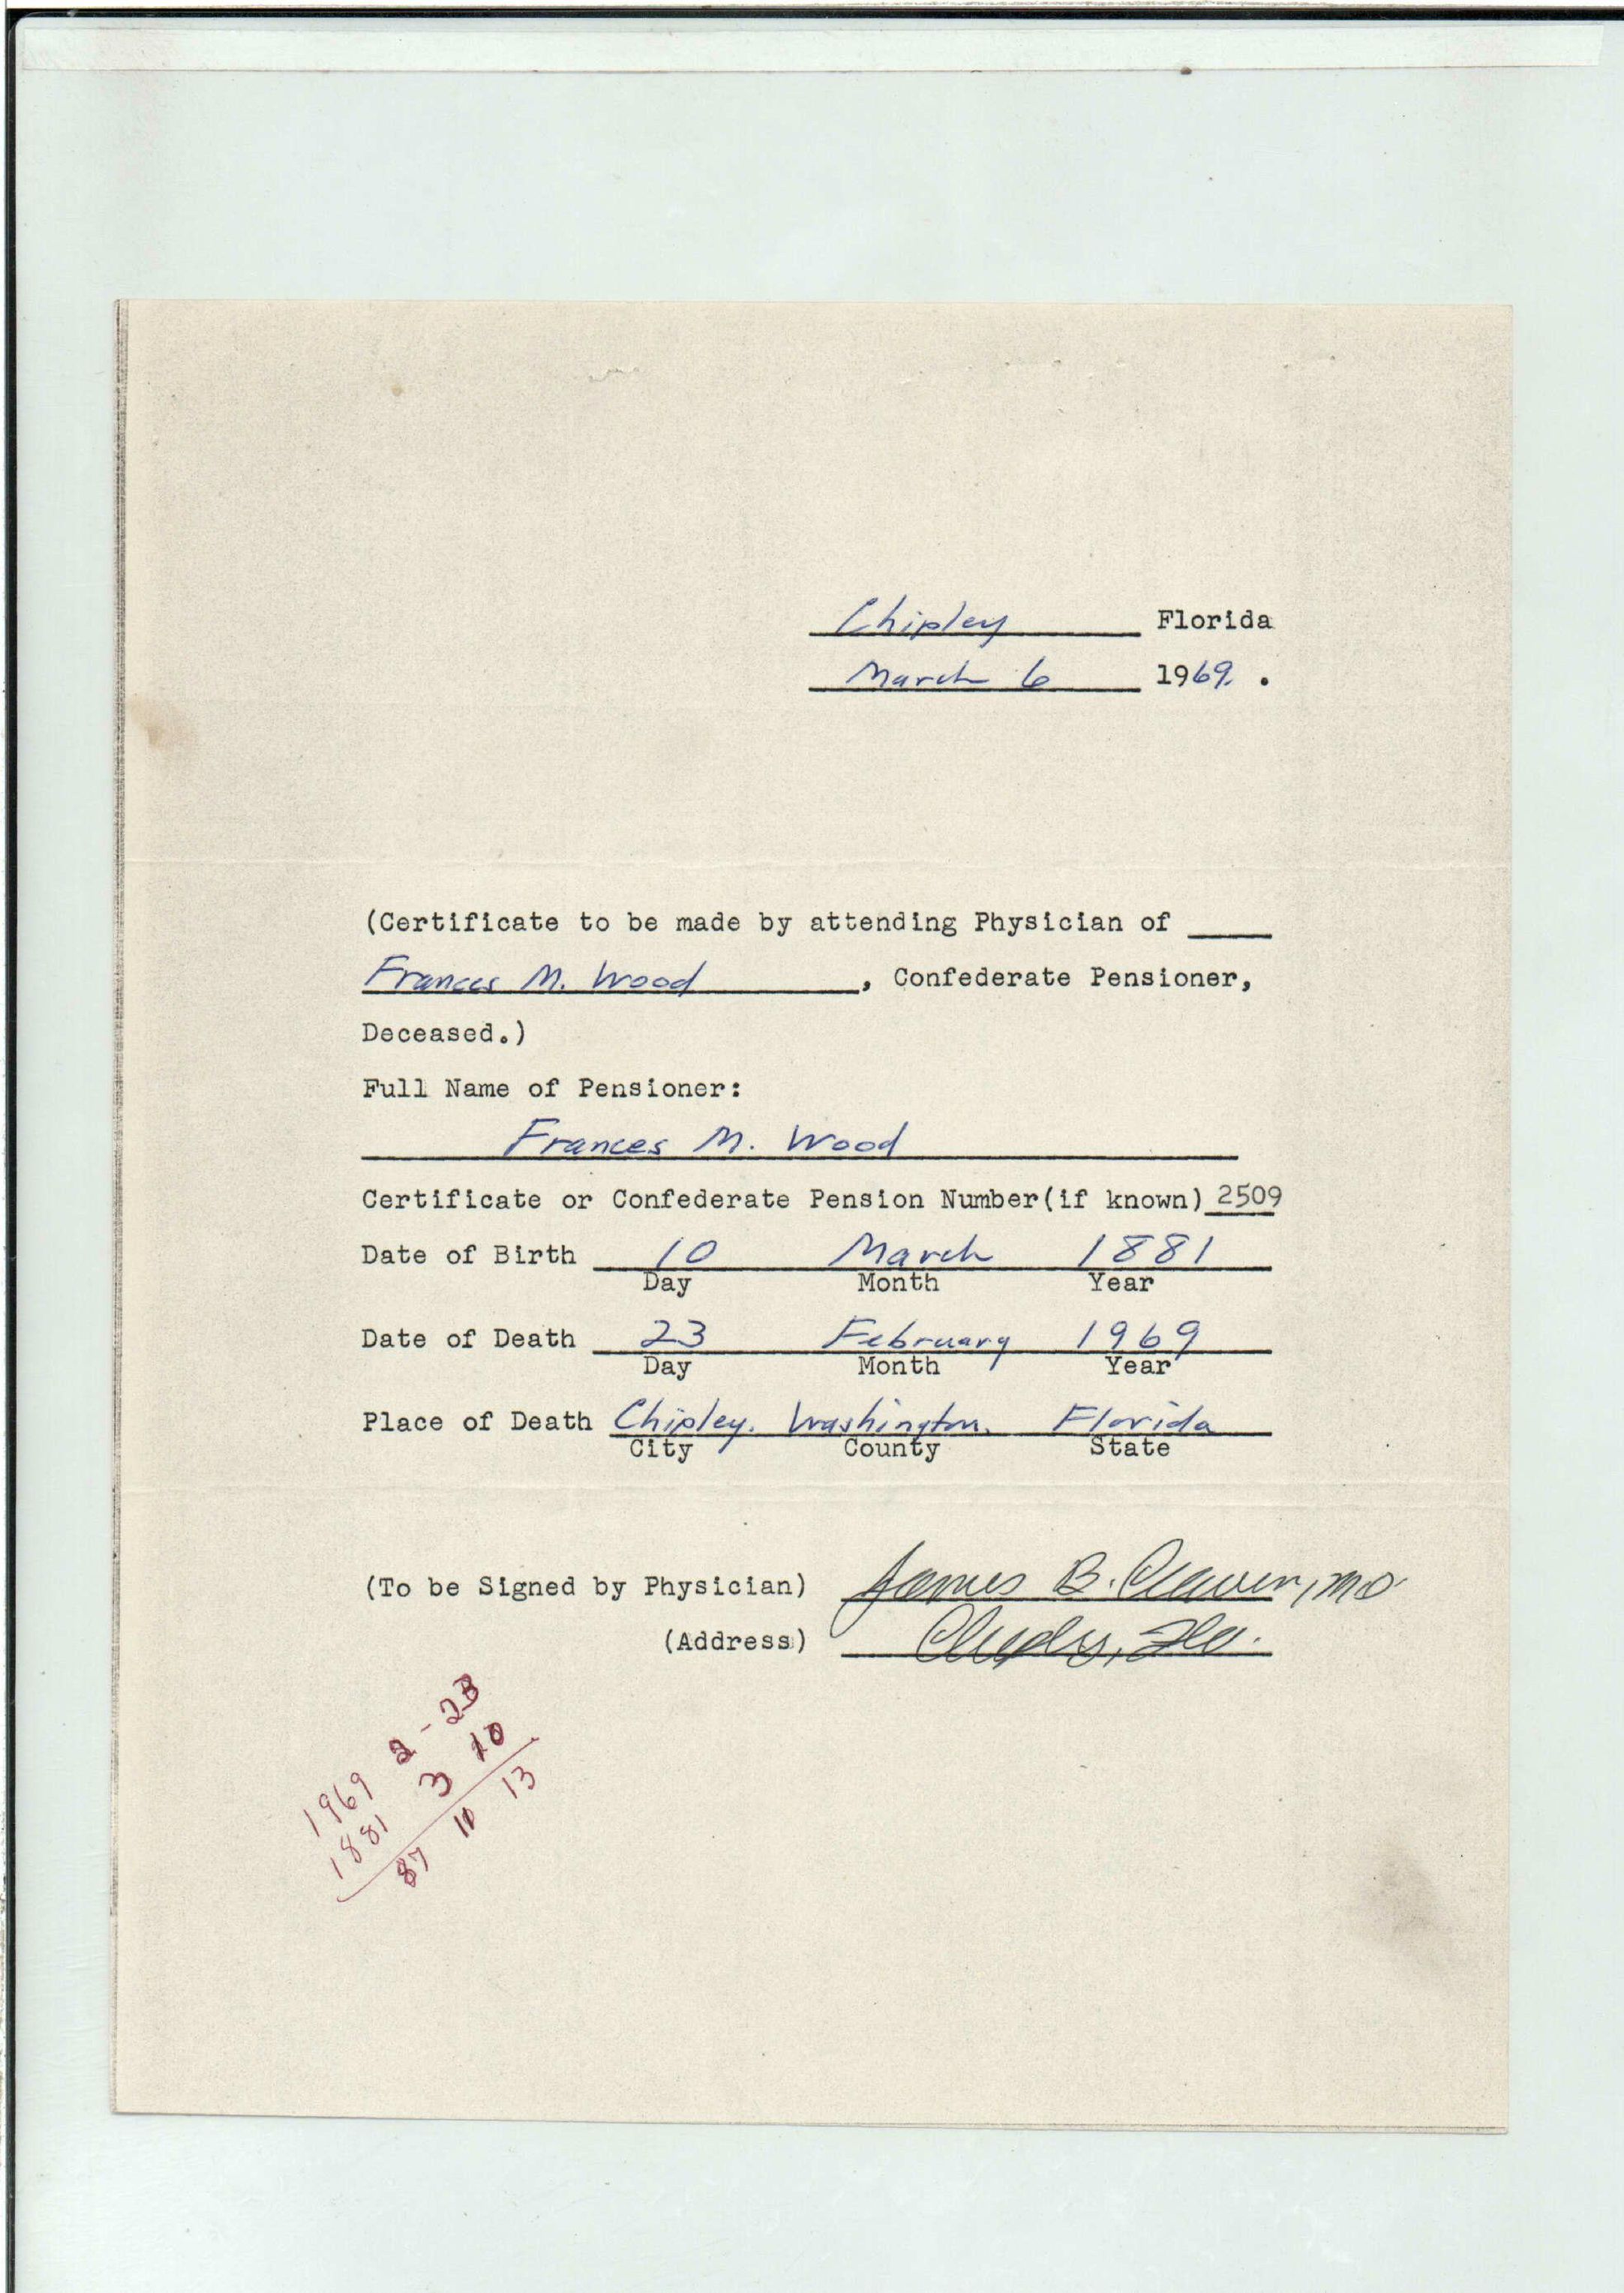 Chipley Florida
March 6 1969. .
(Certificate to be made by attending Physician of
Frances M. Wood, Confederate Pensioner,
Deceased.)
Full Name of Pensioner:
Frances M. Wood
Certificate or Confederate Pension Number(if known) 2509
Date of Birth 10 March 1881
Day Month Year
Date of Death 23 February 1969
Day Month Year
Place of Death Chipley. Washington. Florida
City County State
(To be Signed by Physician) James B. , MD
(Address) Chipley, Fla.
1969 2 - 23
1881 3 10
87 11 13